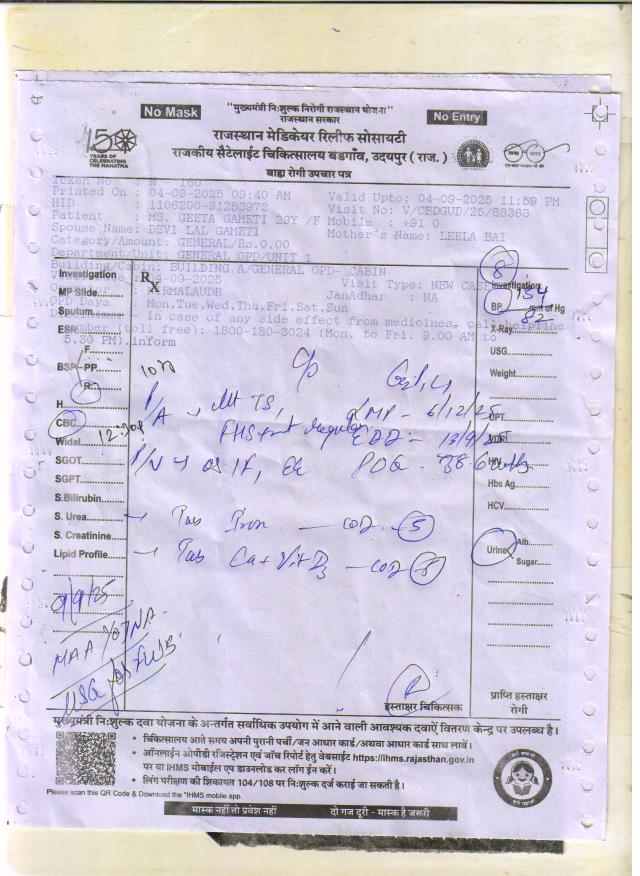 No Mask
"मुख्यमंत्री निःशुल्क निरोगी राजस्थान योजना"
राजस्थान सरकार
No Entry
राजस्थान मेडिकेयर रिलीफ सोसायटी
राजकीय सैटेलाईट चिकित्सालय बडगाँव, उदयपुर ( राज. )
बाह्य रोगी उपचार पत्र
150
YEARS OF
CELEBRATING
THE MAHATMA
Token No : N 160
Printed On : 04-09-2025 09:40 AM Valid Upto: 04-09-2025 11:59 PM
HID : 1106200-91253972 Visit No: V/CBDGUD/25/88363
Patient : MS. GEETA GAMETI 29Y /F Mobile : +91 0
Spouse Name: DEVI LAL GAMETI Mother's Name: LEELA BAI
Category/Amount: GENERAL/Rs.0.00
Department/Unit: GENERAL OPD/UNIT 1
Building/Cabin: BUILDING.A/GENERAL OPD- CABIN
-09-2025 Visit Type: NEW CASE
JanAdhar : NA
OPD Days : Mon,Tue,Wed,Thu,Fri,Sat,Sun
In case of any side effect from medicines, call helpline
number (toll free): 1800-180-3024 (Mon. to Fri. 9.00 AM to
5.30 PM).inform
Investigation
Rx
MP Slide
Sputum
ESR
F
BSP PP
R
H
CBC
Widal
SGOT
SGPT
S.Bilirubin
S. Urea
S. Creatinine
Lipid Profile
8
Investigation
BP mm of Hg
154
82
X-Ray
USG
Weight
OPT
VDRL
HIV
Hbs Ag
HCV
Urine Alb.
Sugar
c/o
P/A
LMP - 6/12/25
EDD - 13/9/25
P/V
POG - 38.6 weeks
Tab Iron - 5
Tab Ca + Vit D3
9/9/25
MAA YOJNA
USG
हस्ताक्षर चिकित्सक
प्राप्ति हस्ताक्षर
रोगी
मुख्यमंत्री निःशुल्क दवा योजना के अन्तर्गत सर्वाधिक उपयोग में आने वाली आवश्यक दवाऐं वितरण केन्द्र पर उपलब्ध है।
• चिकित्सालय आते समय अपनी पुरानी पर्ची/जन आधार कार्ड/अथवा आधार कार्ड साथ लावें।
• ऑनलाईन ओपीडी रजिस्ट्रेशन एवं जाँच रिपोर्ट हेतु वेबसाईट https://ihms.rajasthan.gov.in
पर या IHMS मोबाईल एप डाउनलोड कर लॉग ईन करें।
• लिंग परीक्षण की शिकायत 104/108 पर निःशुल्क दर्ज कराई जा सकती है।
Please scan this QR Code & Download the "IHMS mobile app.
मास्क नहीं तो प्रवेश नहीं दो गज दूरी - मास्क है जरूरी